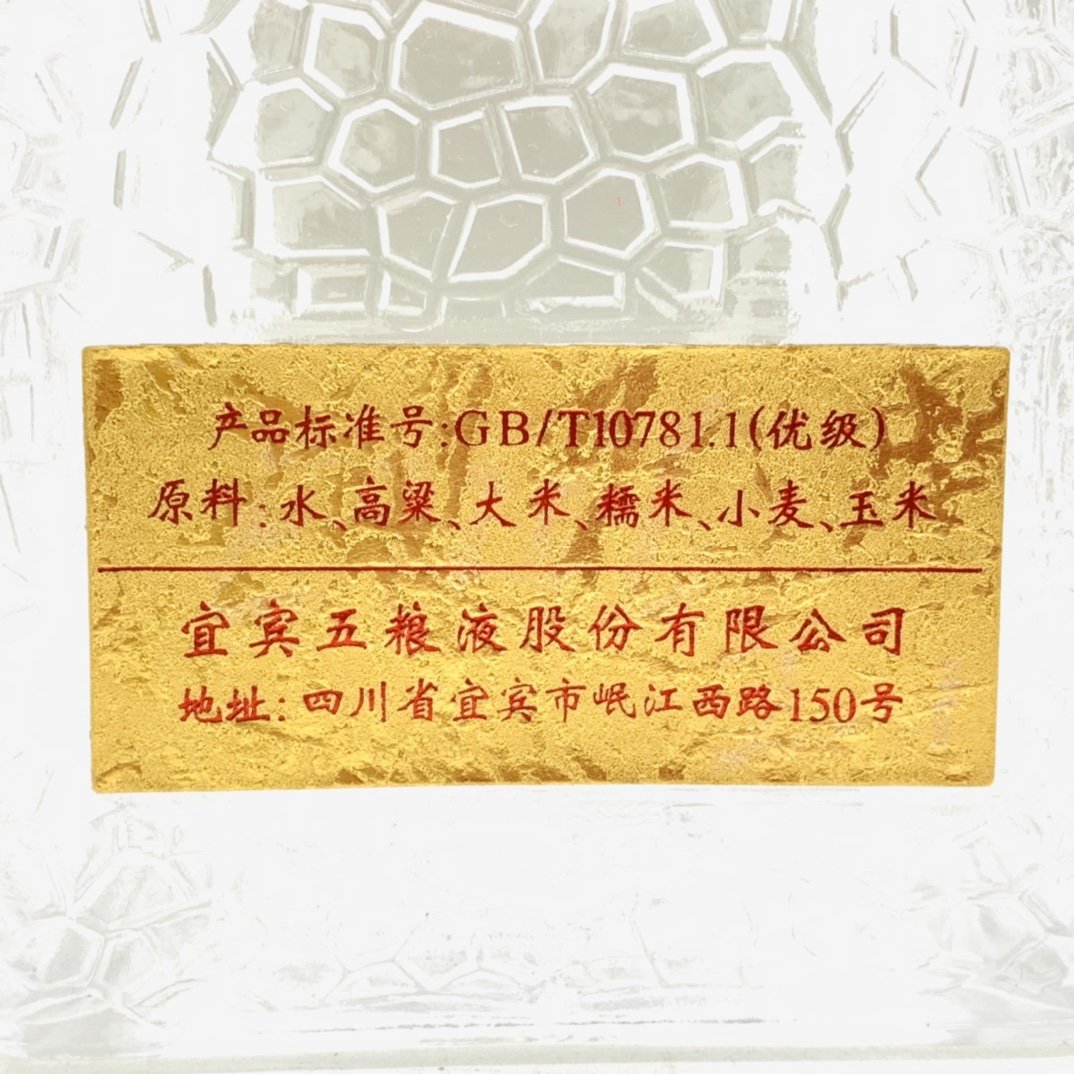 产品标准号:GB/T10781.1(优级)
原料:水、高粱、大米、糯米、小麦、玉米
宜宾五粮液股份有限公司
地址:四川省宜宾市岷江西路150号